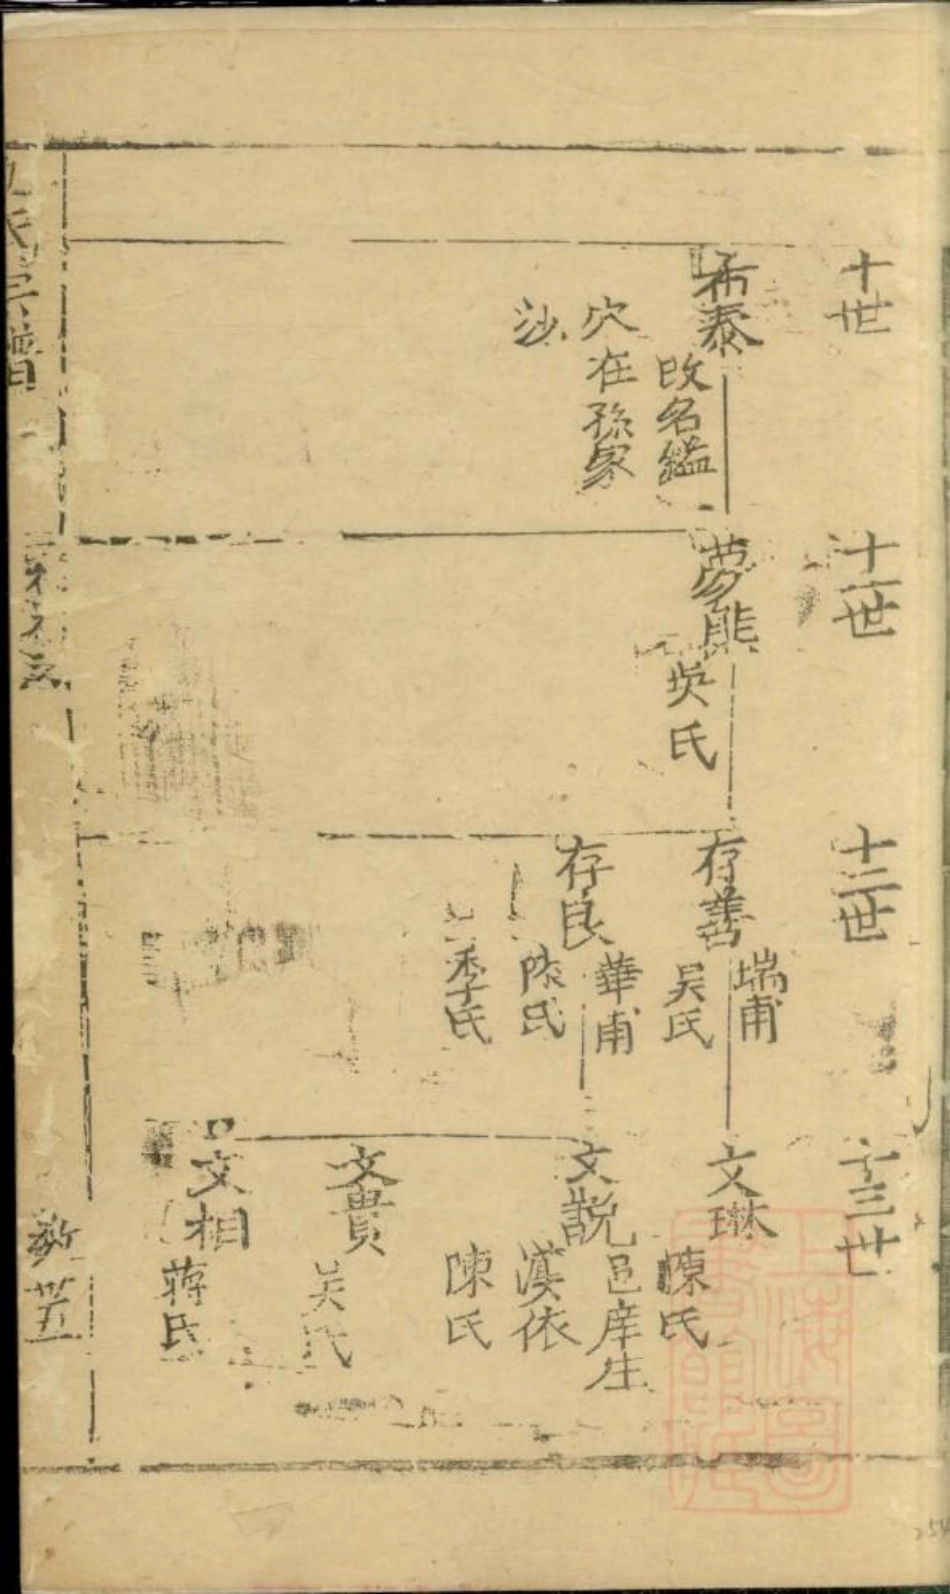 十世
希泰
改名鑑
穴在孫家
沙
十一世
夢熊
吳氏
十二世
存善
瑞甫
吴氏
存良
華甫
陳氏
季氏
十三世
文琳
陳氏
文說
邑庠生
漢依
陳氏
文貴
吴氏
文相
蒋氏
氏宗譜